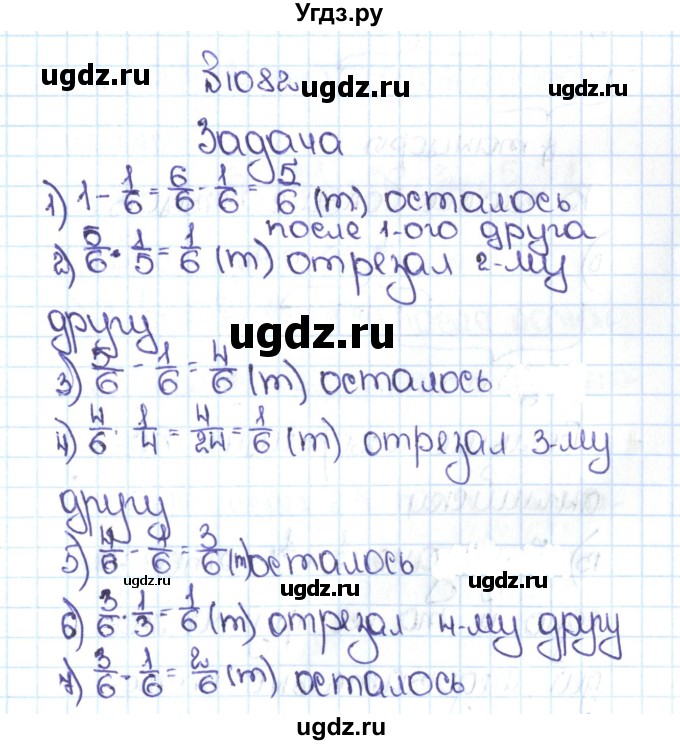 Угдз.ру
ugdz.ru
№1082
ugdz.ru
ugdz.ru
Задача
1) 1 - 1/6 = 6/6 - 1/6 = 5/6 (т) осталось
после 1-ого друга
2) 5/6 · 1/5 = 1/6 (т) отрезал 2-му
другу
ugdz.ru
3) 5/6 - 1/6 = 4/6 (т) осталось
4) 4/6 · 1/4 = 4/24 = 1/6 (т) отрезал 3-му
другу
5) 4/6 - 1/6 = 3/6 (т) осталось
ugdz.ru
ugdz.ru
ugdz.ru
6) 3/6 · 1/3 = 1/6 (т) отрезал 4-му другу
7) 3/6 - 1/6 = 2/6 (т) осталось
ugdz.ru